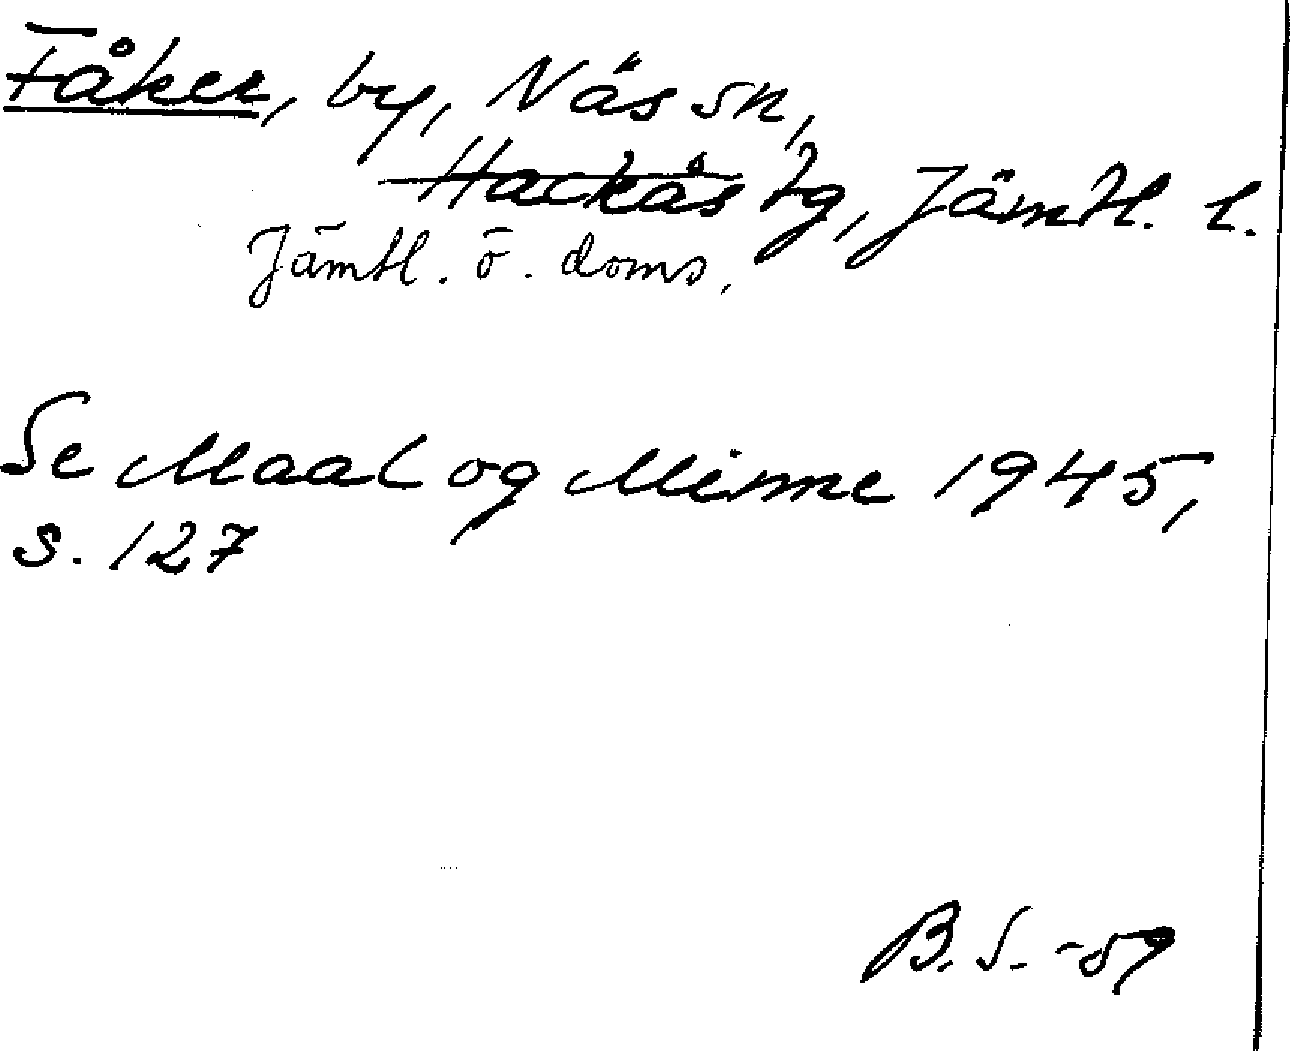 Fåker, by, Näs sn,
Hackås tg, Jämtl. l.
Jämtl. ö. doms.
Se Maal og Minne 1945,
s. 127
B. S. -59